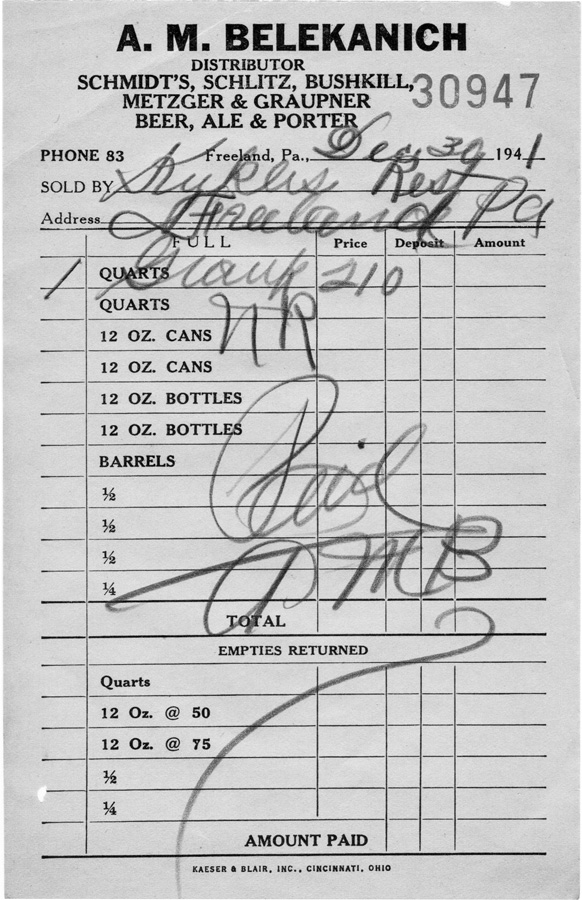 A. M. BELEKANICH
DISTRIBUTOR
SCHMIDT'S, SCHLITZ, BUSHKILL,
METZGER & GRAUPNER
BEER, ALE & PORTER
30947
PHONE 83 Freeland, Pa., Dec 30 1941
SOLD BY Rest
Address Freeland Pa
FULL Price Deposit Amount
1 QUARTS Graup 210
QUARTS NR
12 OZ. CANS
12 OZ. CANS
12 OZ. BOTTLES
12 OZ. BOTTLES
BARRELS
½
½ Paid
½
¼ A M B
TOTAL
EMPTIES RETURNED
Quarts
12 Oz. @ 50
12 Oz. @ 75
½
¼
AMOUNT PAID
KAESER & BLAIR, INC., CINCINNATI, OHIO